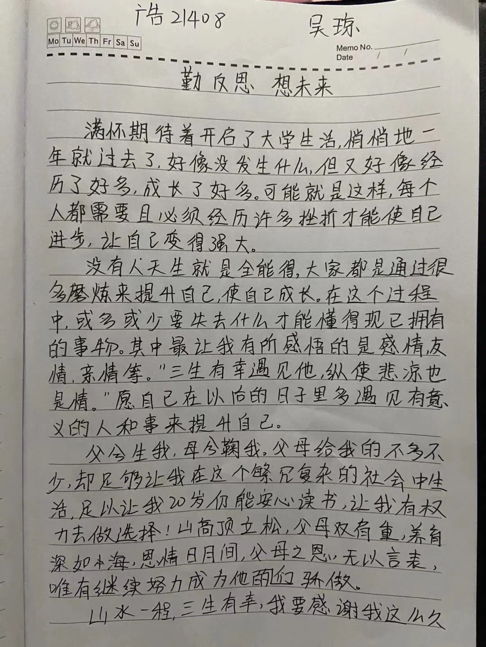 广告21408 吴琼
Mo Tu We Th Fr Sa Su
Memo No.
Date / /
勤反思 想未来
满怀期待着开启了大学生活,悄悄地一
年就过去了,好像没发生什么,但又好像经
历了好多,成长了好多。可能就是这样,每个
人都需要且必须经历许多挫折才能使自己
进步,让自己变得强大。
没有人天生就是全能得,大家都是通过很
多磨炼来提升自己,使自己成长。在这个过程
中,或多或少要失去什么才能懂得现已拥有
的事物。其中最让我有所感悟的是感情,友
情,亲情等。"三生有幸遇见他,纵使悲凉也
是情。"愿自己在以后的日子里多遇见有意
义的人和事来提升自己。
父兮生我,母兮鞠我。父母给我的不多不
少,却足够让我在这个繁冗复杂的社会中生
活,足以让我20岁仍能安心读书,让我有权
力去做选择!山高顶立松,父母双肩重,养育
深如海,恩情日月间,父母之恩,无以言表,
唯有继续努力成为他们骄傲。
山水一程,三生有幸,我要感谢我这么久